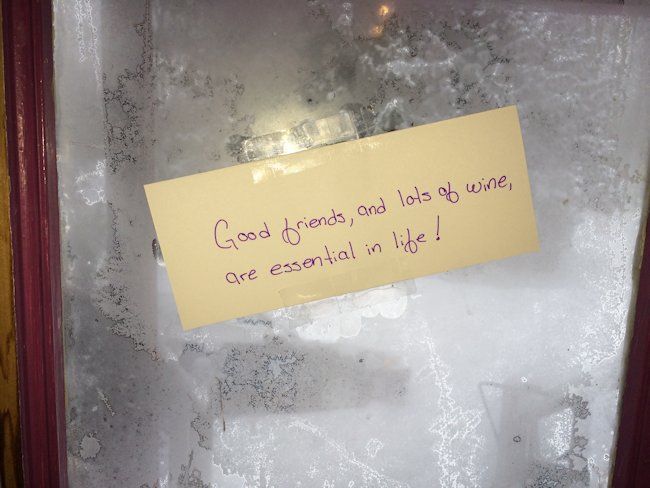 Good friends, and lots of wine,
are essential in life!